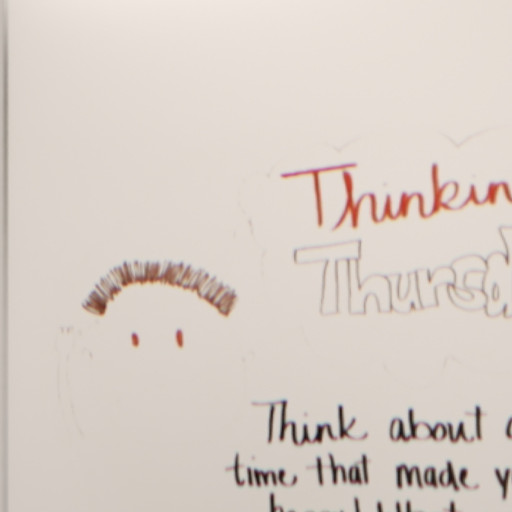 Thinkin
Thursd
Think about
time that made y